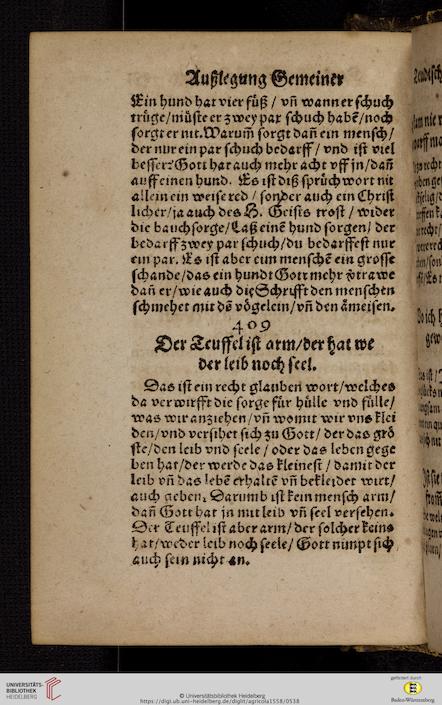 Außlegung Gemeiner
Ein hund hat vier füß / vñ wann er schuch
trüge / müste er zwey par schuch habē / noch
sorgt er nit. Warum̃ sorgt dañ ein mensch /
der nur ein par schuch bedarff / vnd ist viel
besser? Gott hat auch mehr acht vff jn / dañ
auff einen hund. Es ist diß sprüchwort nit
allein ein weise red / sonder auch ein Christ
licher / ja auch des H. Geists trost / wider
die bauchsorge / Laß einē hund sorgen / der
bedarff zwey par schuch / du bedarffest nur
ein par. Es ist aber eim menschē ein grosse
schande / das ein hundt Gott mehr v̈trawe
dañ er / wie auch die Schrifft den menschen
schmehet mit dē vögelein / vñ den ämeisen.
409
Der Teuffel ist arm / der hat we
der leib noch seel.
Das ist ein recht glauben wort / welches
da verwirfft die sorge für hülle vnd fülle /
was wir anziehen / vñ womit wir vns klei
den / vnd versihet sich zu Gott / der das grö
ste / den leib vnd seele / oder das leben gege
ben hat / der werde das kleinest / damit der
leib vñ das lebē erhaltē vñ bekleidet wirt /
auch geben. Darumb ist kein mensch arm /
dañ Gott hat jn mit leib vñ seel versehen.
Der Teuffel ist aber arm / der solcher keins
hat / weder leib noch seele / Gott nimpt sich
auch sein nicht an.
UNIVERSITÄTS-
BIBLIOTHEK
HEIDELBERG
© Universitätsbibliothek Heidelberg
https://digi.ub.uni-heidelberg.de/diglit/agricola1558/0538
gefördert durch
Baden-Württemberg